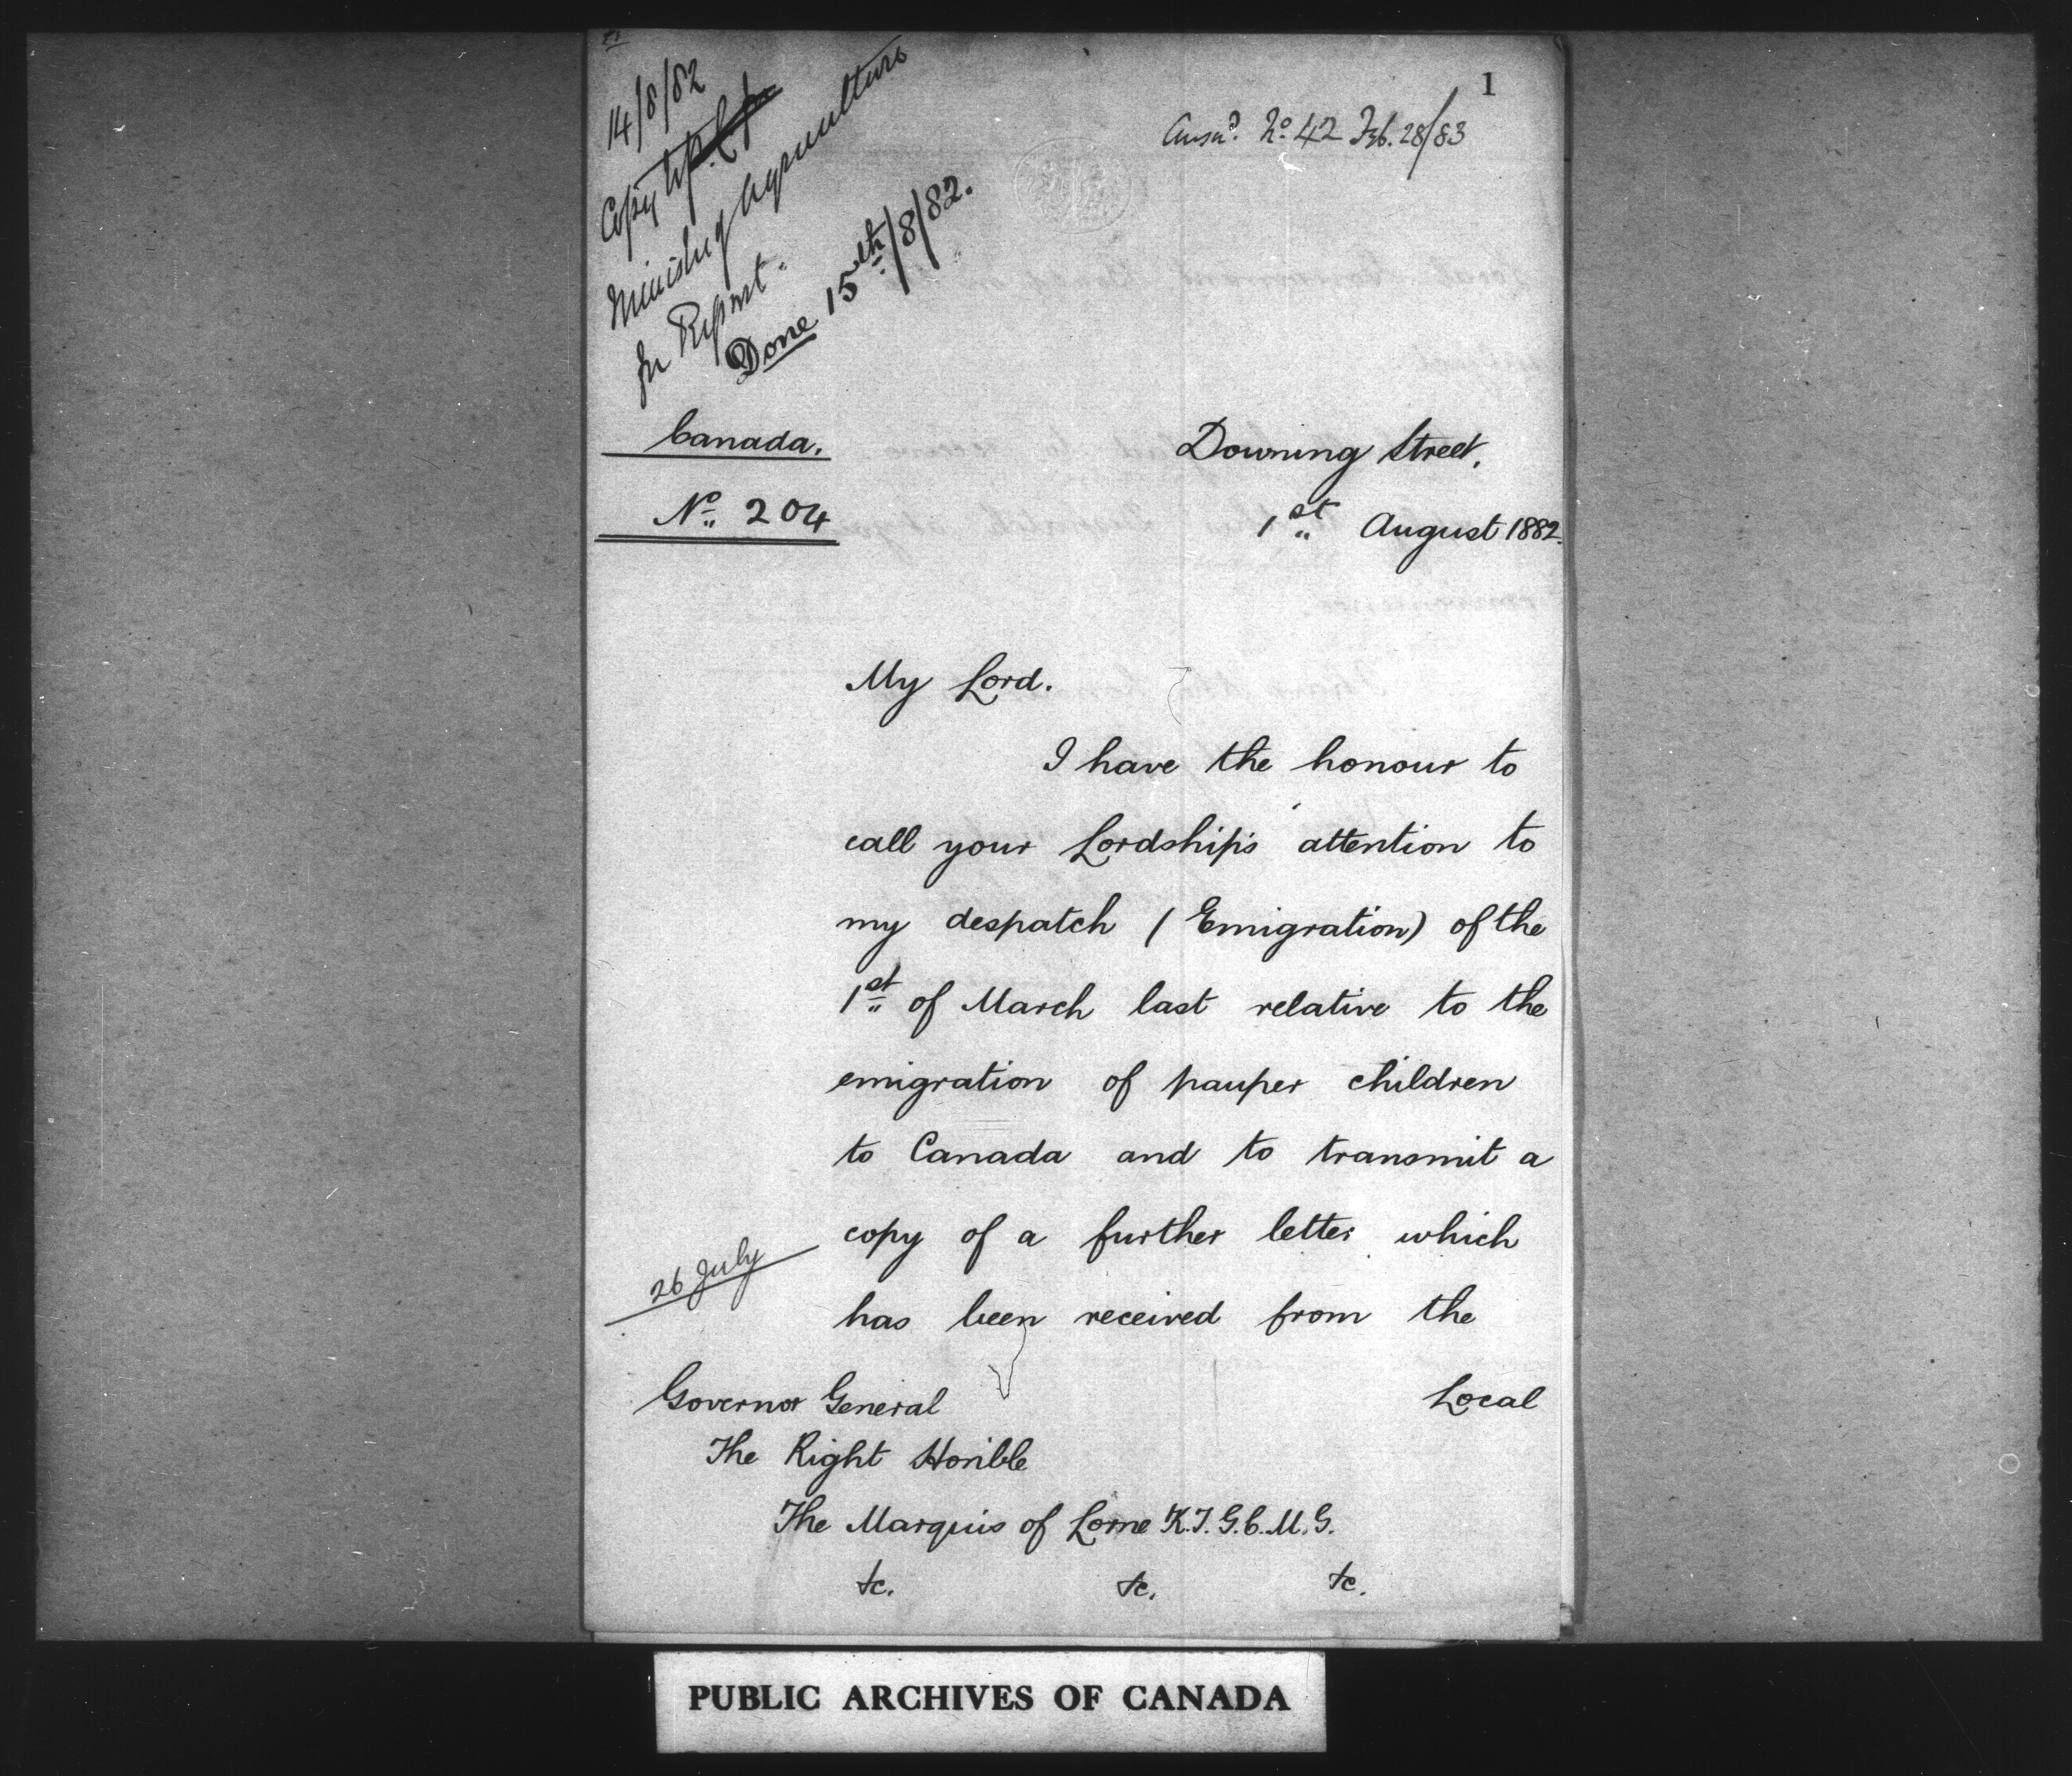 1
14/8/82
Copy to
Minister of Agriculture
for Report.
Done 15th/8/82.
Answd. No. 42 Feb. 28/83
Canada.
No. 204
Downing Street,
1st August 1882.
My Lord.
I have the honour to
call your Lordship's attention to
my despatch (Emigration) of the
1st of March last relative to the
emigration of pauper children
to Canada and to transmit a
copy of a further letter which
26 July
has been received from the
Local
Governor General
The Right Honble
The Marquis of Lorne K.T. G.C.M.G.
&c. &c. &c.
PUBLIC ARCHIVES OF CANADA